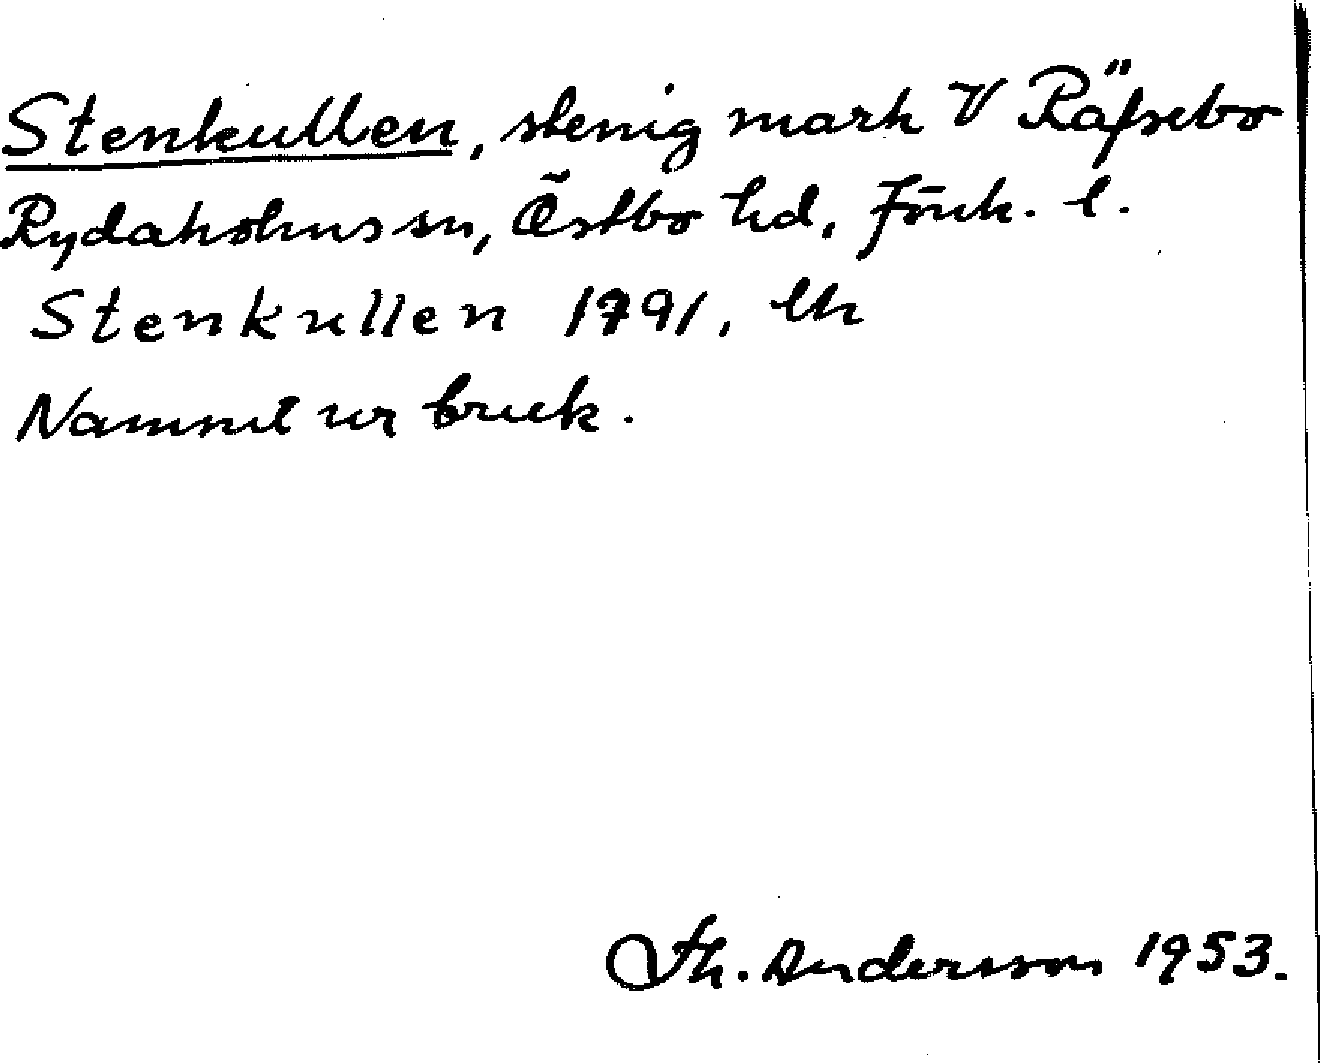 Stenkullen, stenig mark V Räfsebo
Rydaholms sn, Östbo hd, Jönk. l.
Stenkullen 1791, Uh
Namnet ur bruk.
Th. Andersson 1953.